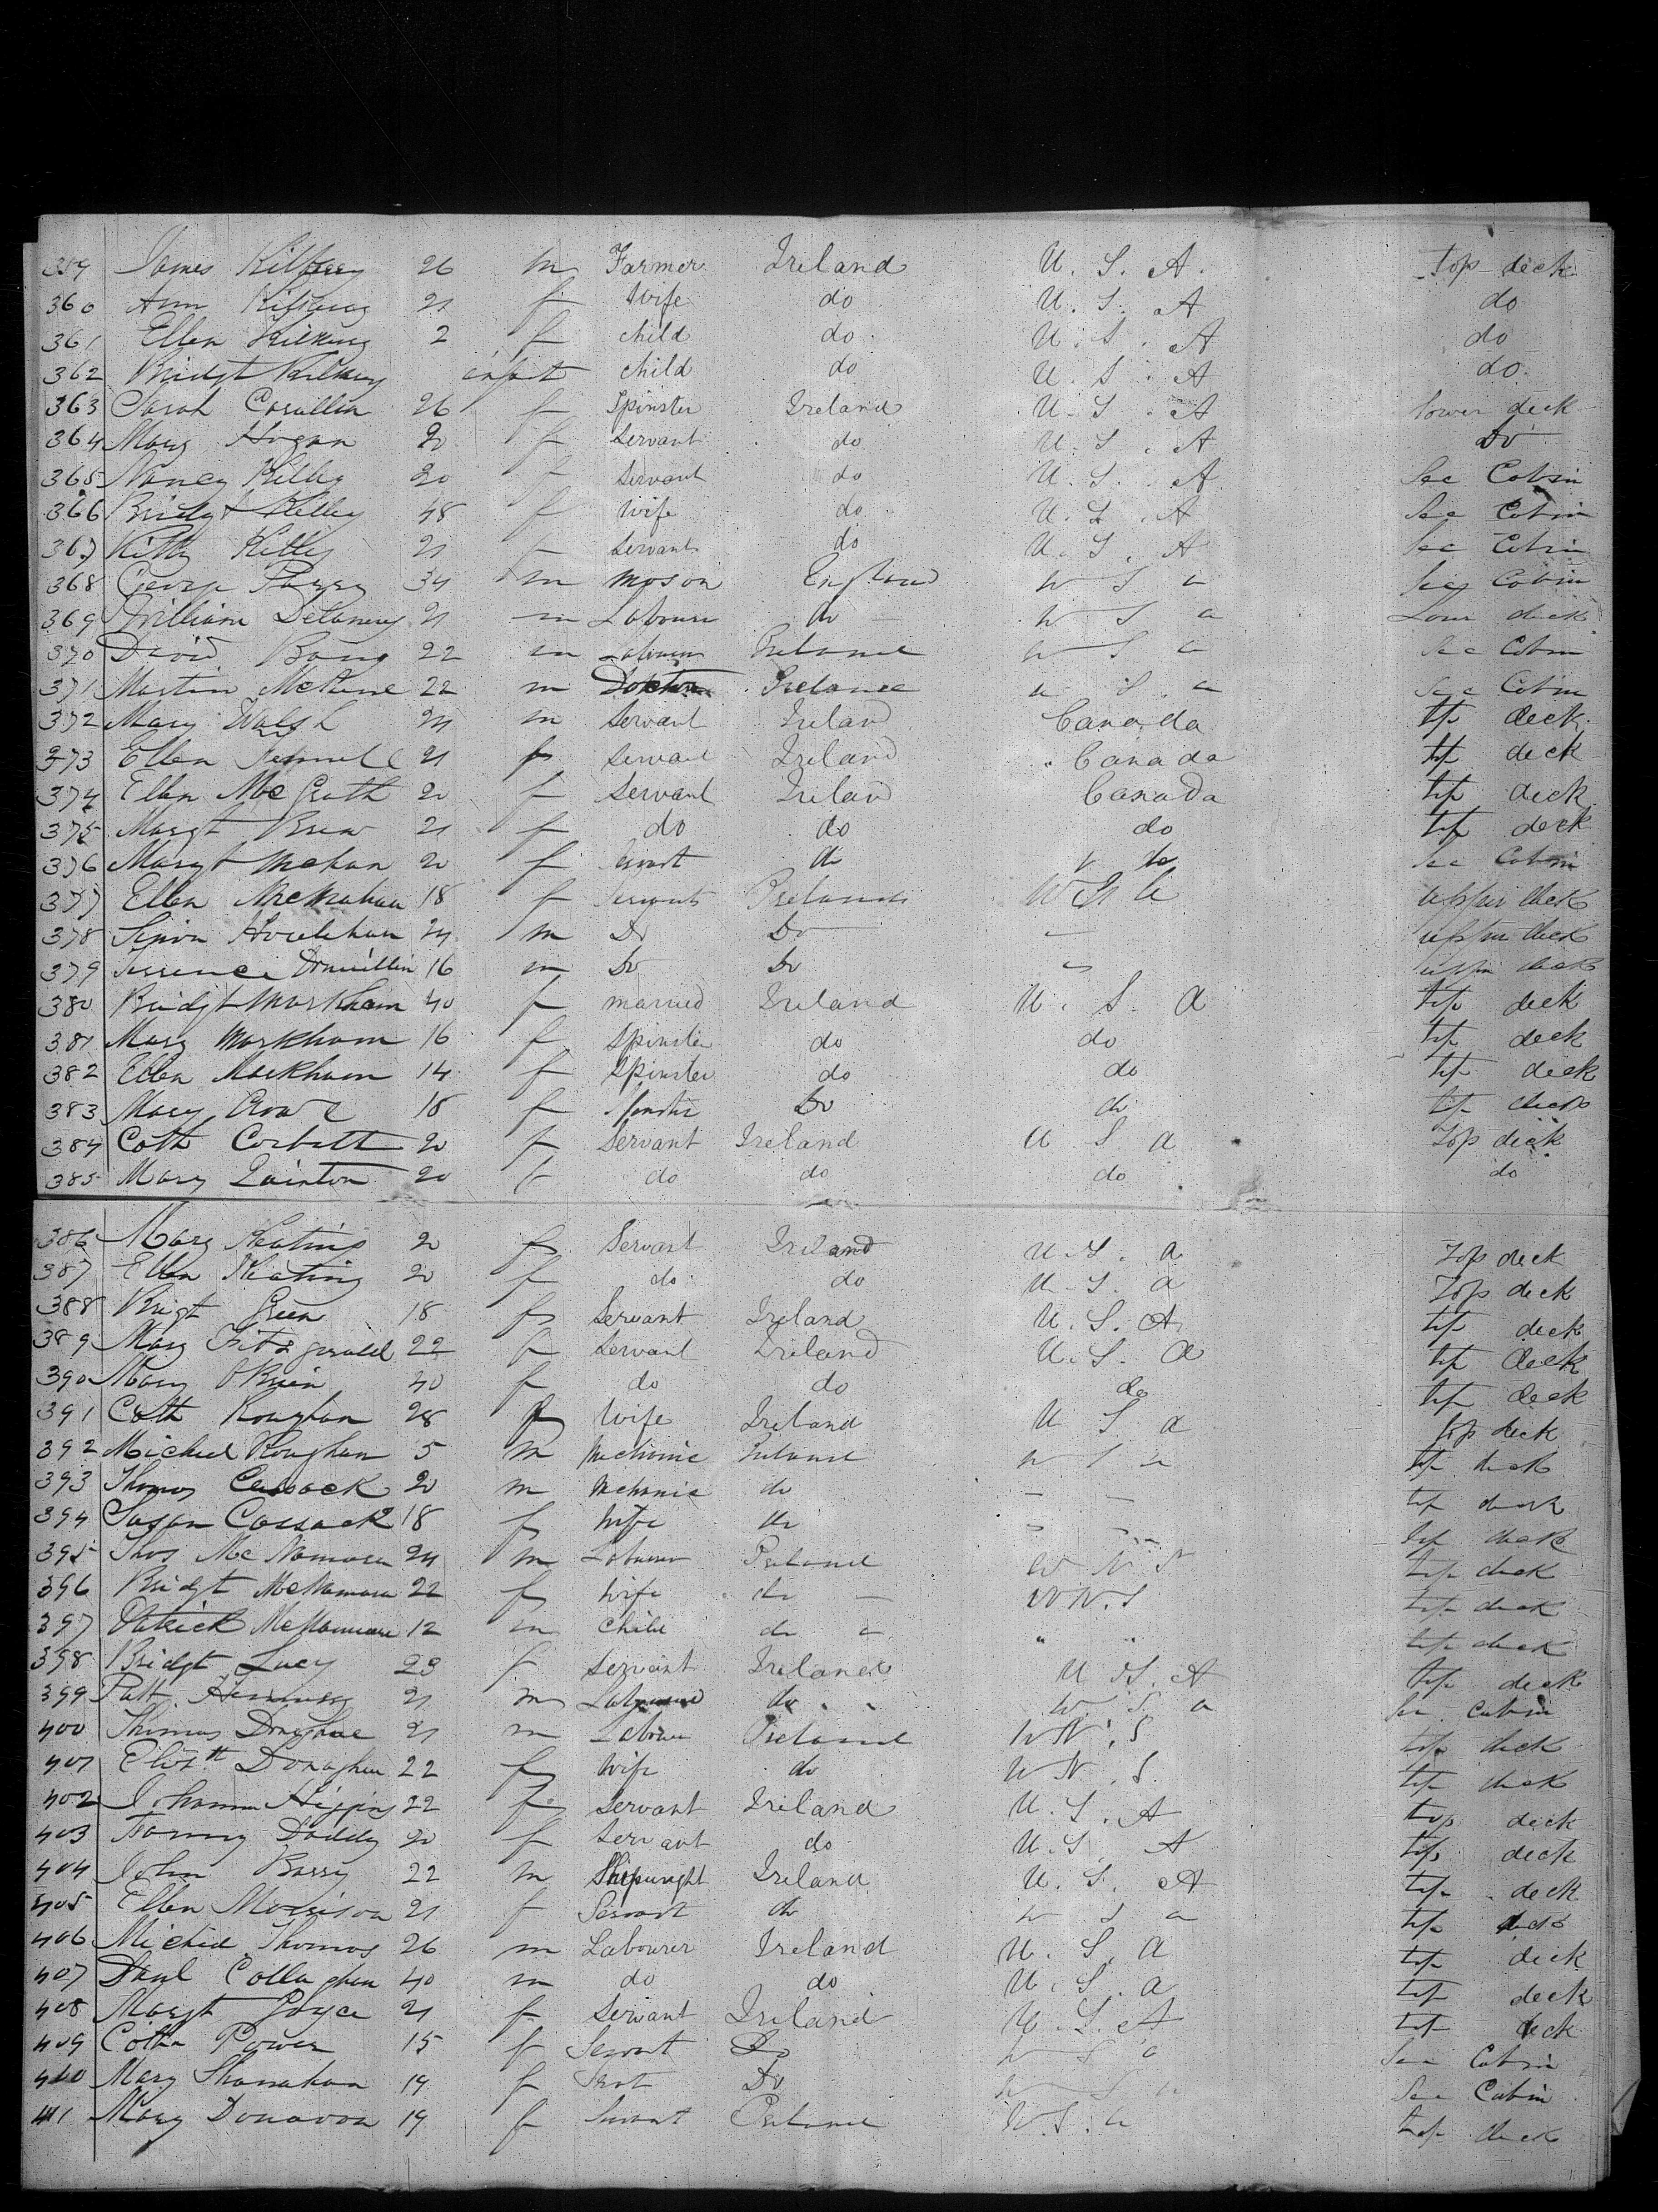 359 James 26 m Farmer Ireland U. S. A. top deck
360 Ann 21 f Wife do U. S. A do
361 Ellen 2 f child do U. S. A do
362 Bridgt infant child do U. S. A do
363 Sarah 26 f Spinster Ireland U. S. A lower deck
364 Mary Hogan 20 f Servant do U. S. A Do
365 Nancy Kelley 20 f Servant do U. S. A Sec Cabin
366 Bridgt Kelley 48 f Wife do U. S. A Sec Cabin
367 Kitty Kelley 21 f Servant do U. S. A Sec Cabin
368 George 34 m mason England U S a Sec Cabin
369 William Delaney 21 m Labourer do U S a Lower deck
370 David 22 m Labourer Ireland U S a Sec Cabin
371 Martin 22 m Ireland U S a Sec Cabin
372 Mary Walsh 24 m Servant Ireland Canada top deck
373 Ellen 21 f Servant Ireland Canada top deck
374 Ellen McGrath 20 f Servant Ireland Canada top deck
375 Margt 21 f do do do top deck
376 Margt Mehan 20 f servant do do Sec Cabin
377 Ellen McMahon 18 f Servant Ireland U S a upper deck
378 Simon Hourlehan 24 m Do Do — upper deck
379 16 m Do Do upper deck
380 Bridgt Markham 40 f married Ireland U. S. a top deck
381 Mary Markham 16 f Spinster do do top deck
382 Ellen Markham 14 f Spinster do do top deck
383 Mary Crowe 18 f Spinster Do do top deck
384 Cath Corbett 20 f Servant Ireland U S a Top deck
385 Mary Quinton 20 f do do do do
386 Mary Keating 20 f Servant Ireland U. S. a Top deck
387 Ellen Keating 20 f do do U. S. a Top deck
388 Brigt Green 18 f Servant Ireland U. S. A top deck
389 Mary Fitzgerald 22 f Servant Ireland U. S. a top deck
390 Mary OBrien 40 f do do do top deck
391 Cath Roughan 28 f Wife Ireland U S a top deck
392 Michael Roughan 5 m Mechanic Ireland U S a top deck
393 Thomas Cussack 20 m Mechanic do — — top deck
394 Susan Cossack 18 f Wife do top deck
395 Thos McNamara 24 m Labourer Ireland top deck
396 Bridgt McNamara 22 f Wife do — top deck
397 Patrick McNamara 12 m Child do " " top deck
398 Bridgt Lucy 23 f Servant Ireland U. S. A top deck
399 Patt Hennessy 21 m Labourer do U. S a Sec Cabin
400 Thomas Donaghue 21 m Labourer Ireland top deck
401 Elizth Donaghue 22 f Wife do top deck
402 Johanna Higgins 22 f Servant Ireland U. S. A top deck
403 Fanny Daddy 20 f Servant do U. S. A top deck
404 John Barry 22 m Shipwright Ireland U. S. A top deck
405 Ellen Morrison 21 f Servant do U S a top deck
406 Michael Thomas 26 m Labourer Ireland U. S. a top deck
407 Danl Callaghan 40 m do do U. S. a top deck
408 Margt Joyce 21 f Servant Ireland U. S. A top deck
409 Cath Power 15 f Servant Do U S a Sec Cabin
410 Mary Shanahan 19 f Servt Do U S a Sec Cabin
411 Mary Donovan 19 f Servant Ireland U. S. a top deck